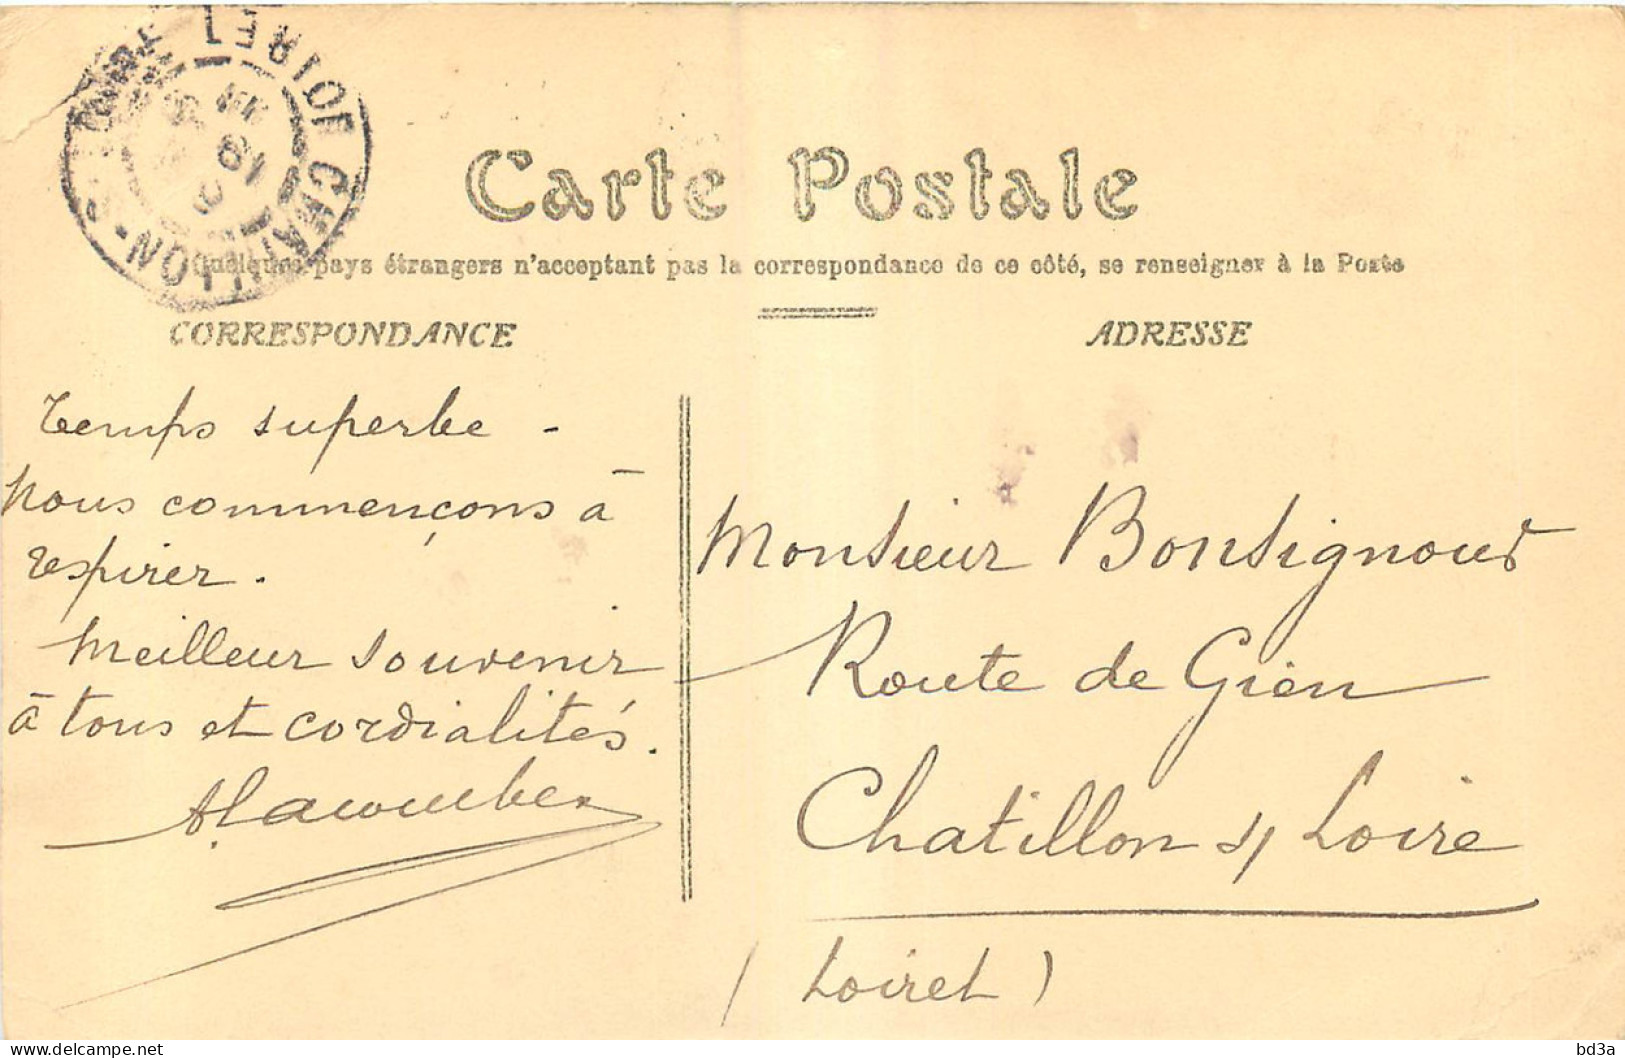 LOIRET
CHATILLON-S-LOIRE
19
Carte Postale
Quelques pays étrangers n'acceptent pas la correspondance de ce côté, se renseigner à la Poste
CORRESPONDANCE
ADRESSE
Temps superbe -
nous commençons à
respirer.
Meilleur souvenir
à tous et cordialités.
Monsieur Bonsignour
Route de Gien
Chatillon s/ Loire
(Loiret)
bd3a